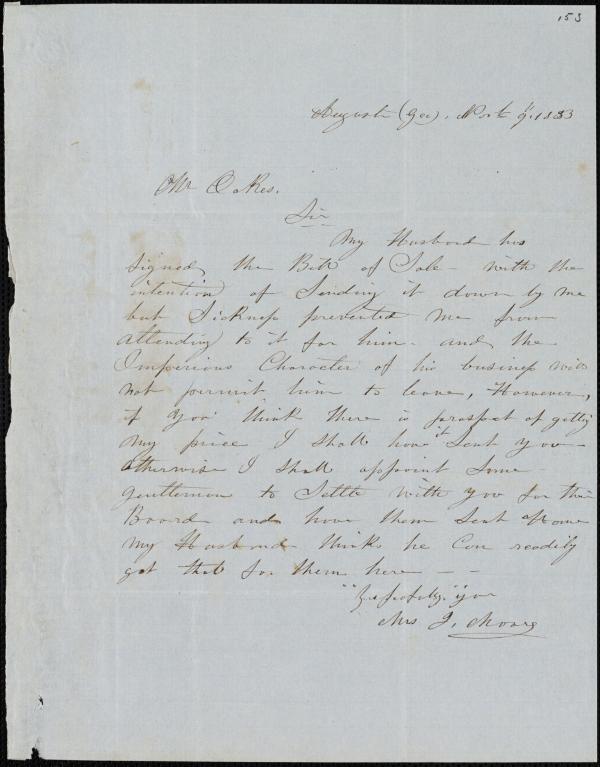 153
Augusta (Geo), 9, 1853
Mr Oakes.
Sir
My Husband has
signed the Bill of Sale - with the
intention of Sending it down by me
but Sickness prevented me from
attending to it for him - and the
Imperious Character of his business will
not permit him to leave, However,
if you think there is prospect of getting
my price I shall have it Sent you -
otherwise I shall appoint Some
gentleman to Settle with you for their
Board and have them Sent Home
my Husband thinks he Can readily
get that for them here - -
"Respectfully" your
Mrs J. Moore